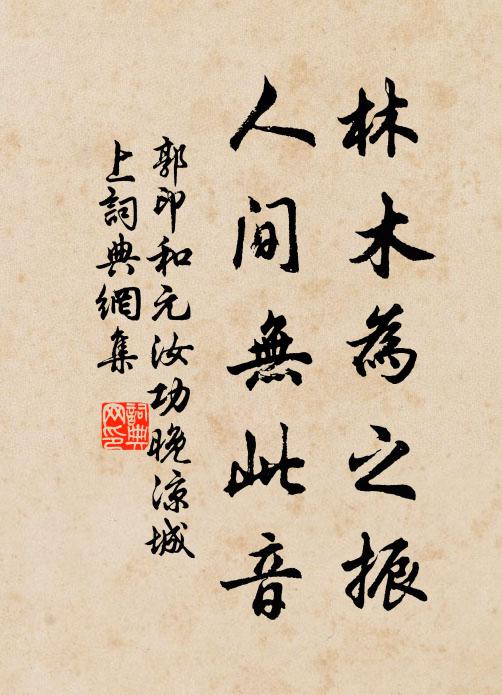 林木為之振
人間無此音
郭印和元汝功晚涼城
上詞典網集
詞典
网印